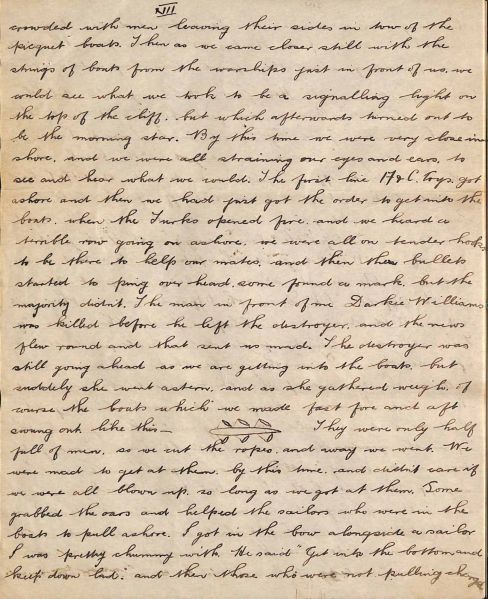 XIII
crowded with men leaving their sides in tow of the
picquet boats. Then as we came closer still with the
strings of boats from the warships just in front of us, we
could see what we took to be a signalling light on
the top of the cliff, but which afterwards turned out to
be the morning star. By this time we were very close in
shore, and we were all straining our eyes and ears, to
see and hear what we could. The first line 17 & C. Coys. got
ashore and then we had just got the order to get into the
boats, when the Turks opened fire, and we heard a
terrible row going on ashore, we were all on tender hooks
to be there to help our mates, and then the bullets
started to ping over head, some found a mark, but the
majority didnt. The man in front of me Darkie Williams
was killed before he left the destroyer, and the news
flew round and that sent us mad. The destroyer was
still going ahead as we are getting into the boats, but
suddely she went astern, and as she gathered weigh, of
course the boats which we made fast fore and aft
swung out like this — They were only half
full of men, so we cut the ropes, and away we went. We
were mad to get at them, by this time, and didn't care if
we were all blown up, so long as we got at them. Some
grabbed the oars and helped the sailors who were in the
boats to pull ashore. I got in the bow alongside a sailor
I was pretty chummy with. He said "Get into the bottom, and
keep down lad, and then those who were not pulling